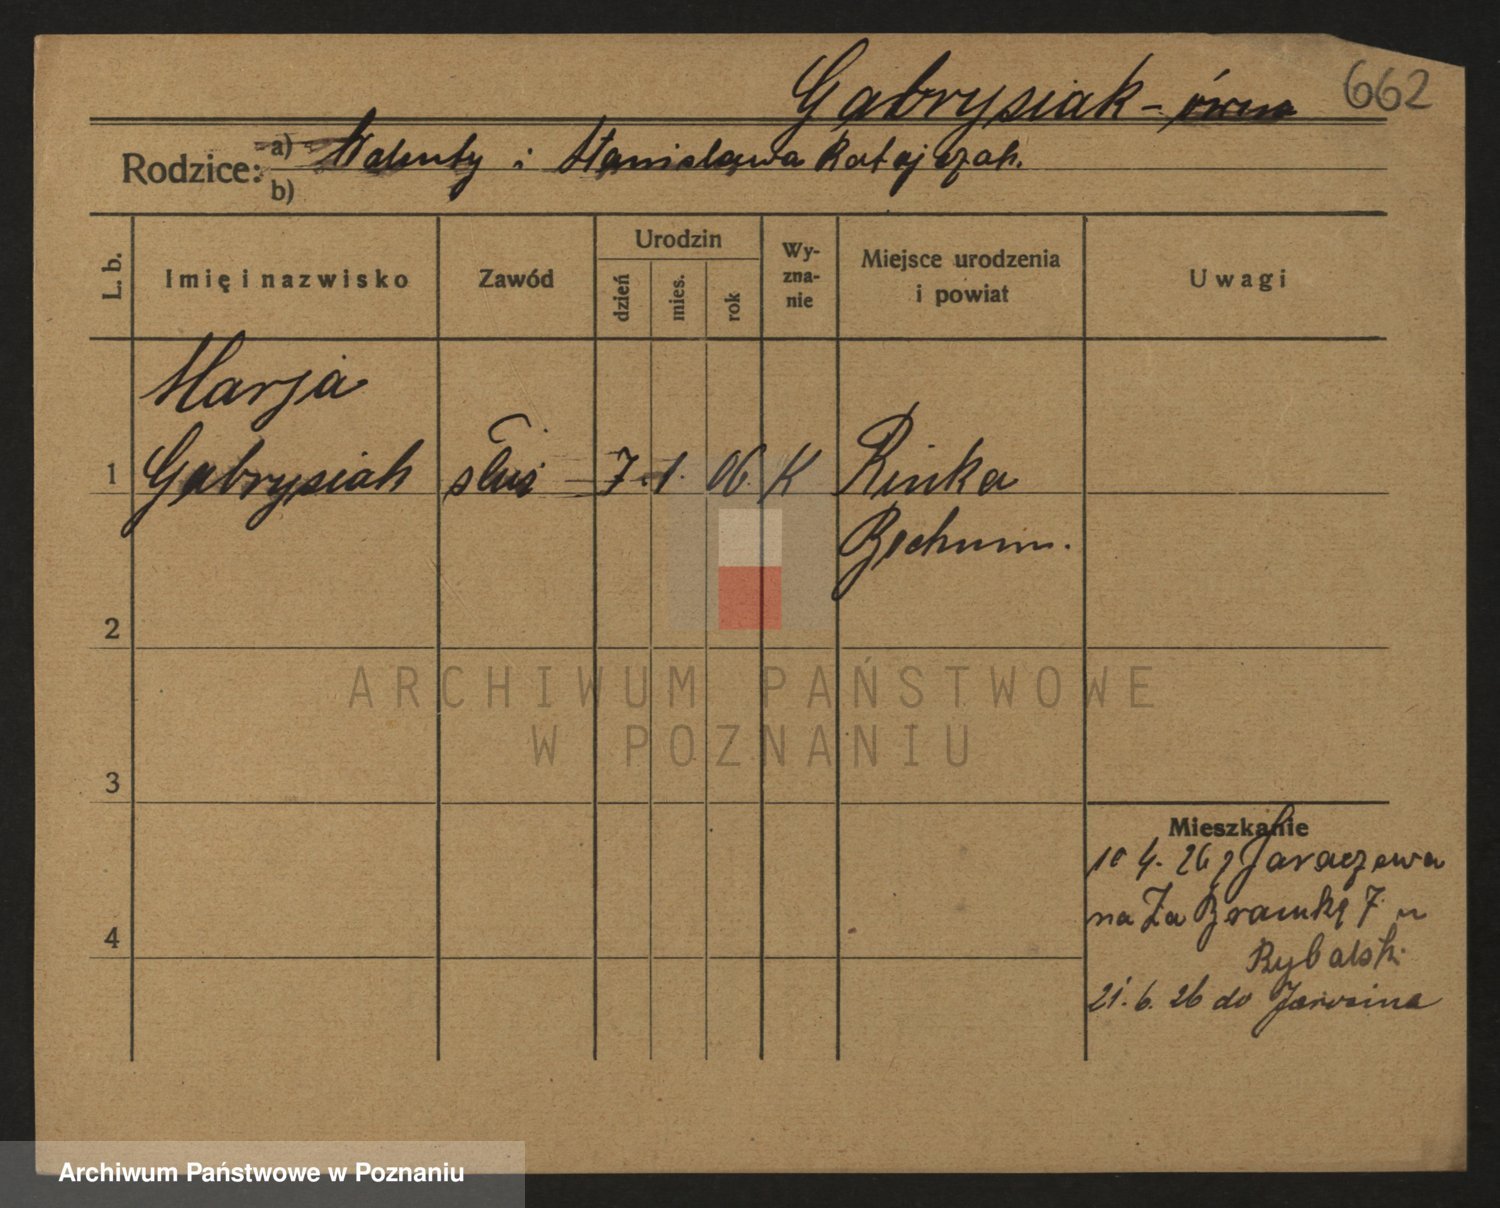 Gabrysiak - ówna 662
Rodzice: a) Walenty i Stanisława Ratajczak.
b)
L. b. Imię i nazwisko Zawód Urodzin dzień mies. rok Wy-zna-nie Miejsce urodzenia i powiat Uwagi
Marja
1 Gabrysiak służ 7. 1. 06. K Rinka
Bochum.
2
ARCHIWUM PAŃSTWOWE
W POZNANIU
3
Mieszkanie
10 4. 26 z Jaraczewa
na Za Bramką 7 u
4
Rybalski
21. 6. 26 do Jarocina
Archiwum Państwowe w Poznaniu